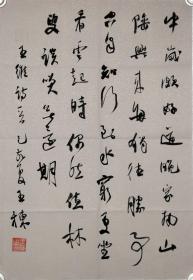 中歲頗好道晚家南山
陲興來每獨往勝事
空自知行到水窮處坐
看雲起時偶然值林
叟談笑無還期
王維詩一首